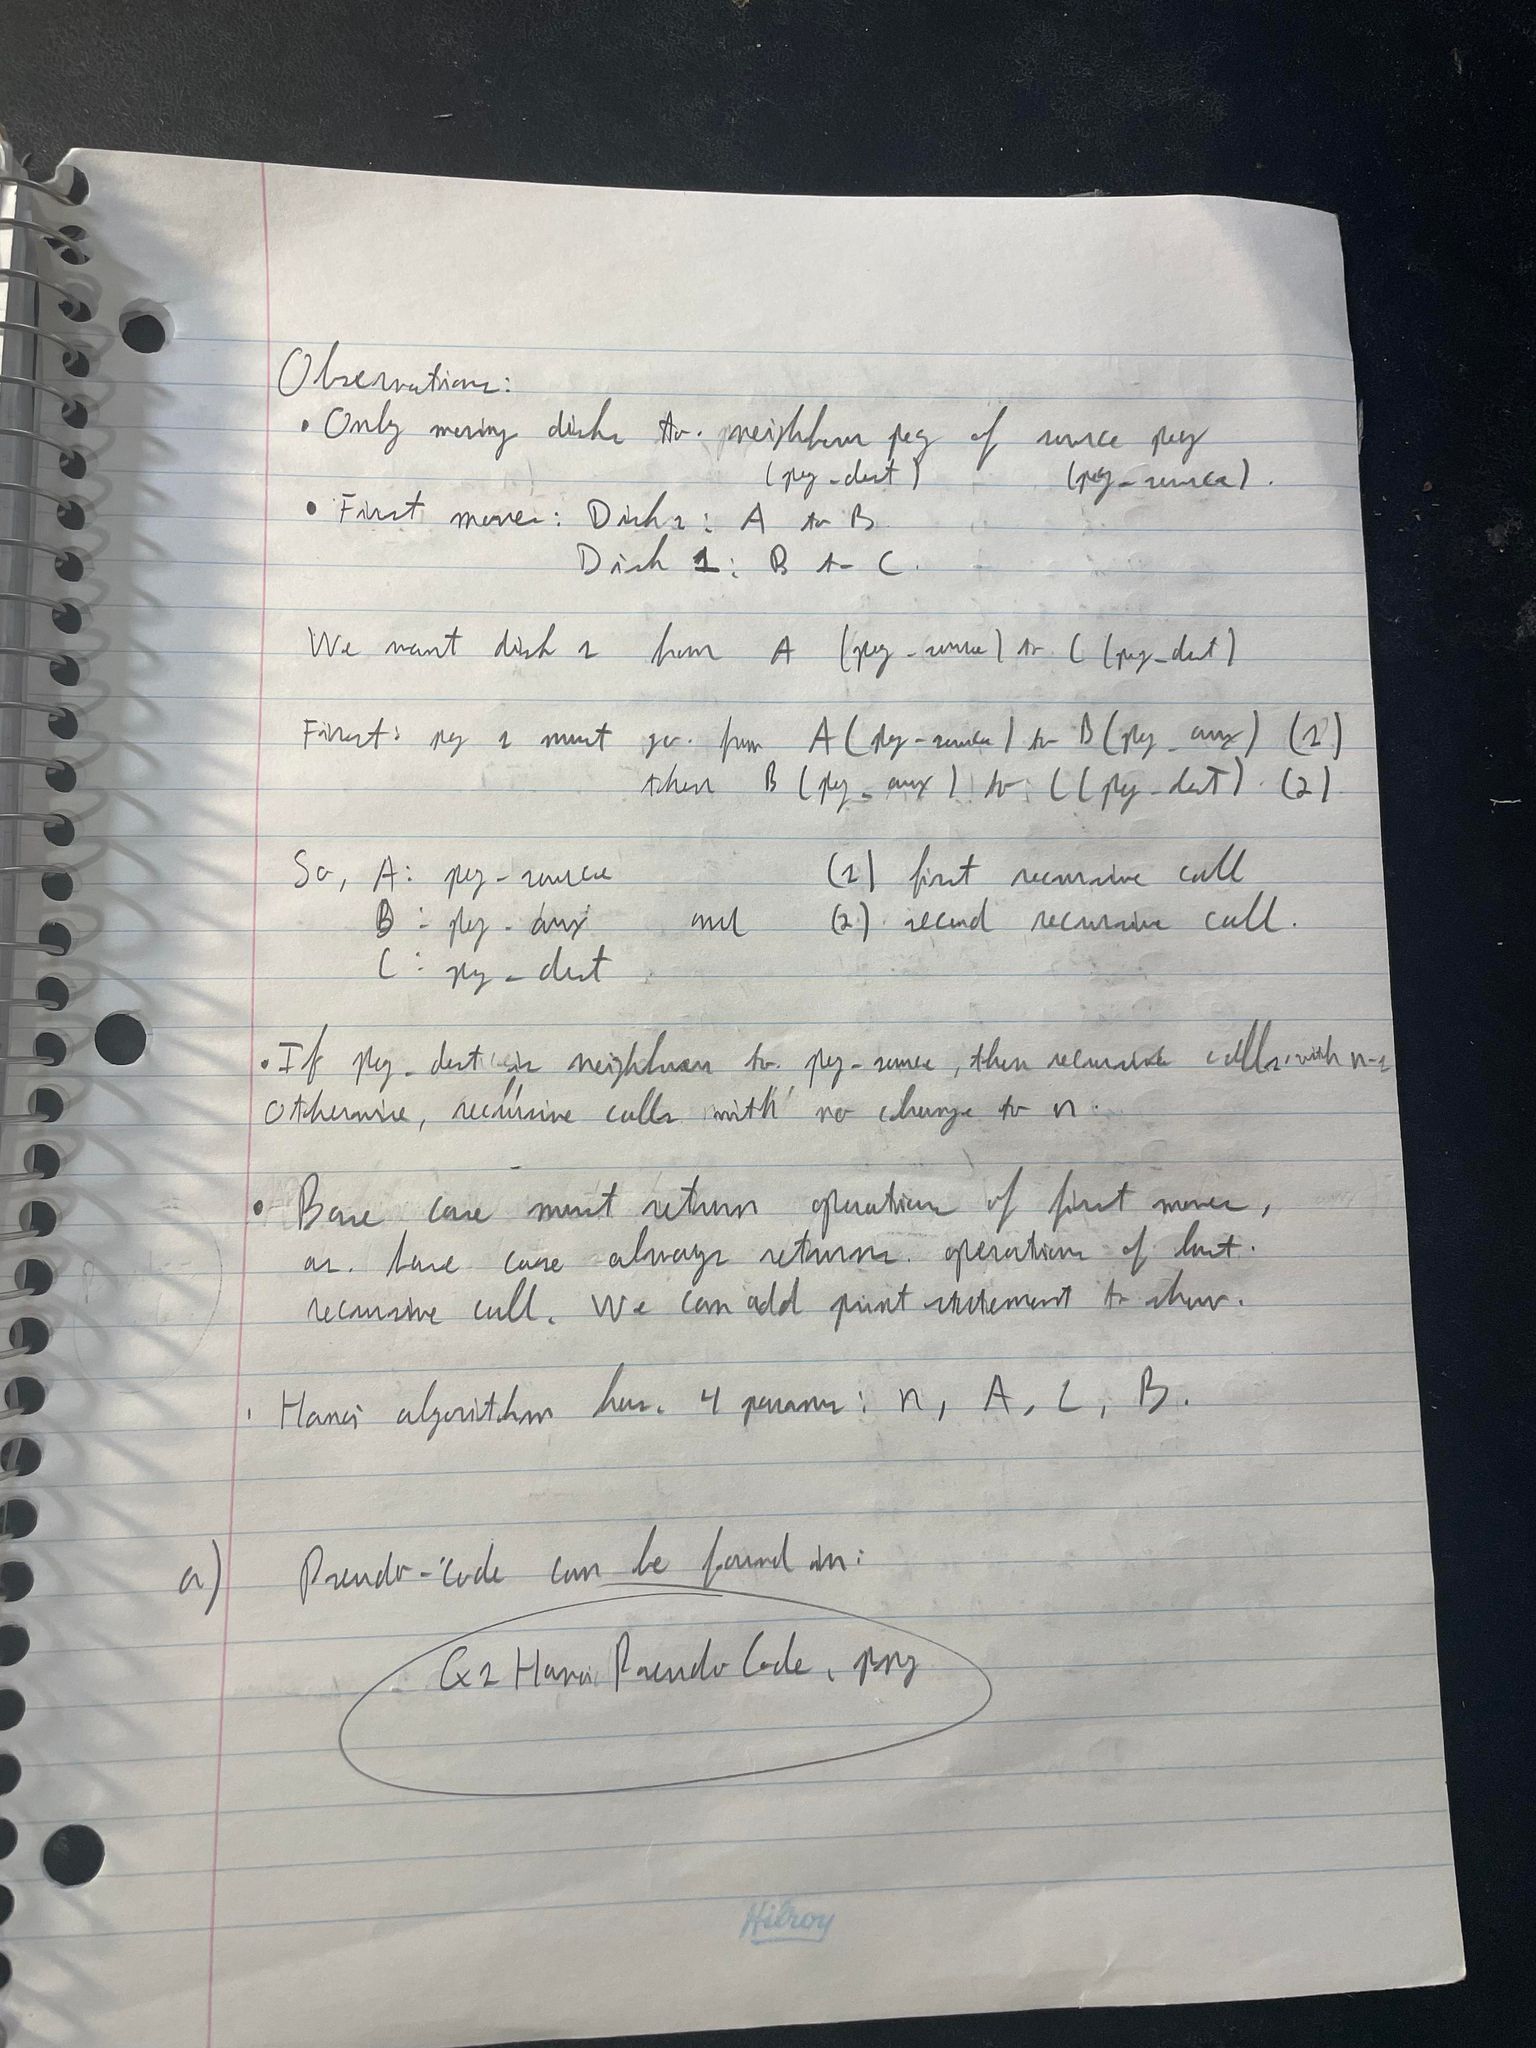 Observations:
• Only moving disks to neighbour peg of source peg
(peg_dest) (peg_source).
• First moves: Disk 1: A to B
Disk 1: B to C.
We want disk 1 from A (peg_source) to C (peg_dest)
First: peg 1 must go from A (peg-source) to B (peg_aux) (1)
then B (peg_aux) to C (peg_dest). (2)
So, A: peg-source (1) first recursive call
B: peg-aux and (2) second recursive call.
C: peg_dest
• If peg_dest is neighbour to peg-source, then recursive calls with n-1
Otherwise, recursive calls "with" no change to n.
• Base case must return operation of first moves,
as base case always returns operation of last
recursive call. We can add print statement to show.
• Hanoi algorithm has 4 params: n, A, C, B.
a) Pseudo-Code can be found in:
Q2 Hanoi Pseudo Code. png
Hilroy